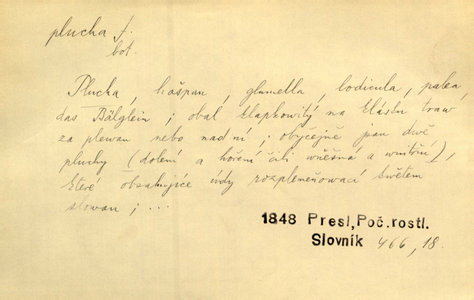 plucha f.
bot.
Plucha, hošpan, glumella, lodicula, palea,
das Bälglein; obal klapkowitý na klásku traw
za plewan nebo nad ní; obyčejně jsau dvě
pluchy (dolení a hoření čili wněšná a wnitřní),
které obsahujíce údy rozpleměňowací květem
slowau; ...
1848 Presl, Poč. rostl.
Slovník 466, 18.